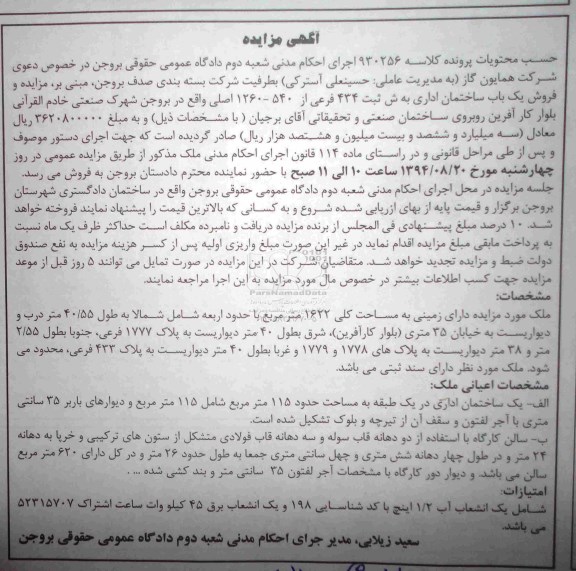 آگهی مزایده
حسب محتویات پرونده کلاسه ۹۳۰۲۵۶ اجرای احکام مدنی شعبه دوم دادگاه عمومی حقوقی بروجن در خصوص دعوی
شرکت همایون گاز (به مدیریت عاملی: حسینعلی آسترکی) بطرفیت شرکت بسته بندی صدف بروجن، مبنی بر، مزایده و
فروش یک باب ساختمان اداری به ش ثبت ۴۳۴ فرعی از ۵۴۰ -۱۲۶۰ اصلی واقع در بروجن شهرک صنعتی خادم القرآنی
بلوار کار آفرین روبروی ساختمان صنعتی و تحقیقاتی آقای برجیان ( با مشخصات ذیل) و به مبلغ ۳۶۲۰۸۰۰۰۰۰ ریال
معادل (سه میلیارد و ششصد و بیست میلیون و هشتصد هزار ریال) صادر گردیده است که جهت اجرای دستور موصوف
و پس از طی مراحل قانونی و در راستای ماده ۱۱۴ قانون اجرای احکام مدنی ملک مذکور از طریق مزایده عمومی در روز
چهارشنبه مورخ ۱۳۹۴/۰۸/۲۰ ساعت ۱۰ الی ۱۱ صبح با حضور نماینده محترم دادستان بروجن به فروش می رسد.
جلسه مزایده در محل اجرای احکام مدنی شعبه دوم دادگاه عمومی حقوقی بروجن واقع در ساختمان دادگستری شهرستان
بروجن برگزار و قیمت پایه از بهای ارزیابی شده شروع و به کسانی که بالاترین قیمت را پیشنهاد نمایند فروخته خواهد
شد. ۱۰ درصد مبلغ پیشنهادی فی المجلس از برنده مزایده دریافت و نامبرده مکلف است حداکثر ظرف یک ماه نسبت
به پرداخت مابقی مبلغ مزایده اقدام نماید در غیر این صورت مبلغ واریزی اولیه پس از کسر هزینه مزایده به نفع صندوق
دولت ضبط و مزایده تجدید خواهد شد. متقاضیان شرکت در این مزایده در صورت تمایل می توانند ۵ روز قبل از موعد
مزایده جهت کسب اطلاعات بیشتر در خصوص مال مورد مزایده به این اجرا مراجعه نمایند.
مشخصات:
ملک مورد مزایده دارای زمینی به مساحت کلی ۱۶۲۲ متر مربع با حدود اربعه شامل شمالا به طول ۴۰/۵۵ متر درب و
دیواریست به خیابان ۳۵ متری (بلوار کارآفرین)، شرق بطول ۴۰ متر دیواریست به پلاک ۱۷۷۷ فرعی، جنوبا بطول ۲/۵۵
متر و ۳۸ متر دیواریست به پلاک های ۱۷۷۸ و ۱۷۷۹ و غربا بطول ۴۰ متر دیواریست به پلاک ۴۳۳ فرعی، محدود می
شود. ملک مورد نظر دارای سند ثبتی می باشد.
مشخصات اعیانی ملک:
الف- یک ساختمان اداری در یک طبقه به مساحت حدود ۱۱۵ متر مربع شامل ۱۱۵ متر مربع و دیوارهای باربر ۳۵ سانتی
متری با آجر لفتون و سقف آن از تیرچه و بلوک تشکیل شده است.
ب- سالن کارگاه با استفاده از دو دهانه قاب سوله و سه دهانه قاب فولادی متشکل از ستون های ترکیبی و خرپا به دهانه
۲۴ متر و در طول چهار دهانه شش متری و چهل سانتی متری جمعا به طول حدود ۲۶ متر و در کل دارای ۶۲۰ متر مربع
سالن می باشد. و دیوار دور کارگاه با مشخصات آجر لفتون ۳۵ سانتی متر و بند کشی شده ... .
امتیازات:
شامل یک انشعاب آب ۱/۲ اینچ با کد شناسایی ۱۹۸ و یک انشعاب برق ۴۵ کیلو وات ساعت اشتراک ۵۲۳۱۵۷۰۷
می باشد.
سعید زیلابی، مدیر جرای احکام مدنی شعبه دوم دادگاه عمومی حقوقی بروجن